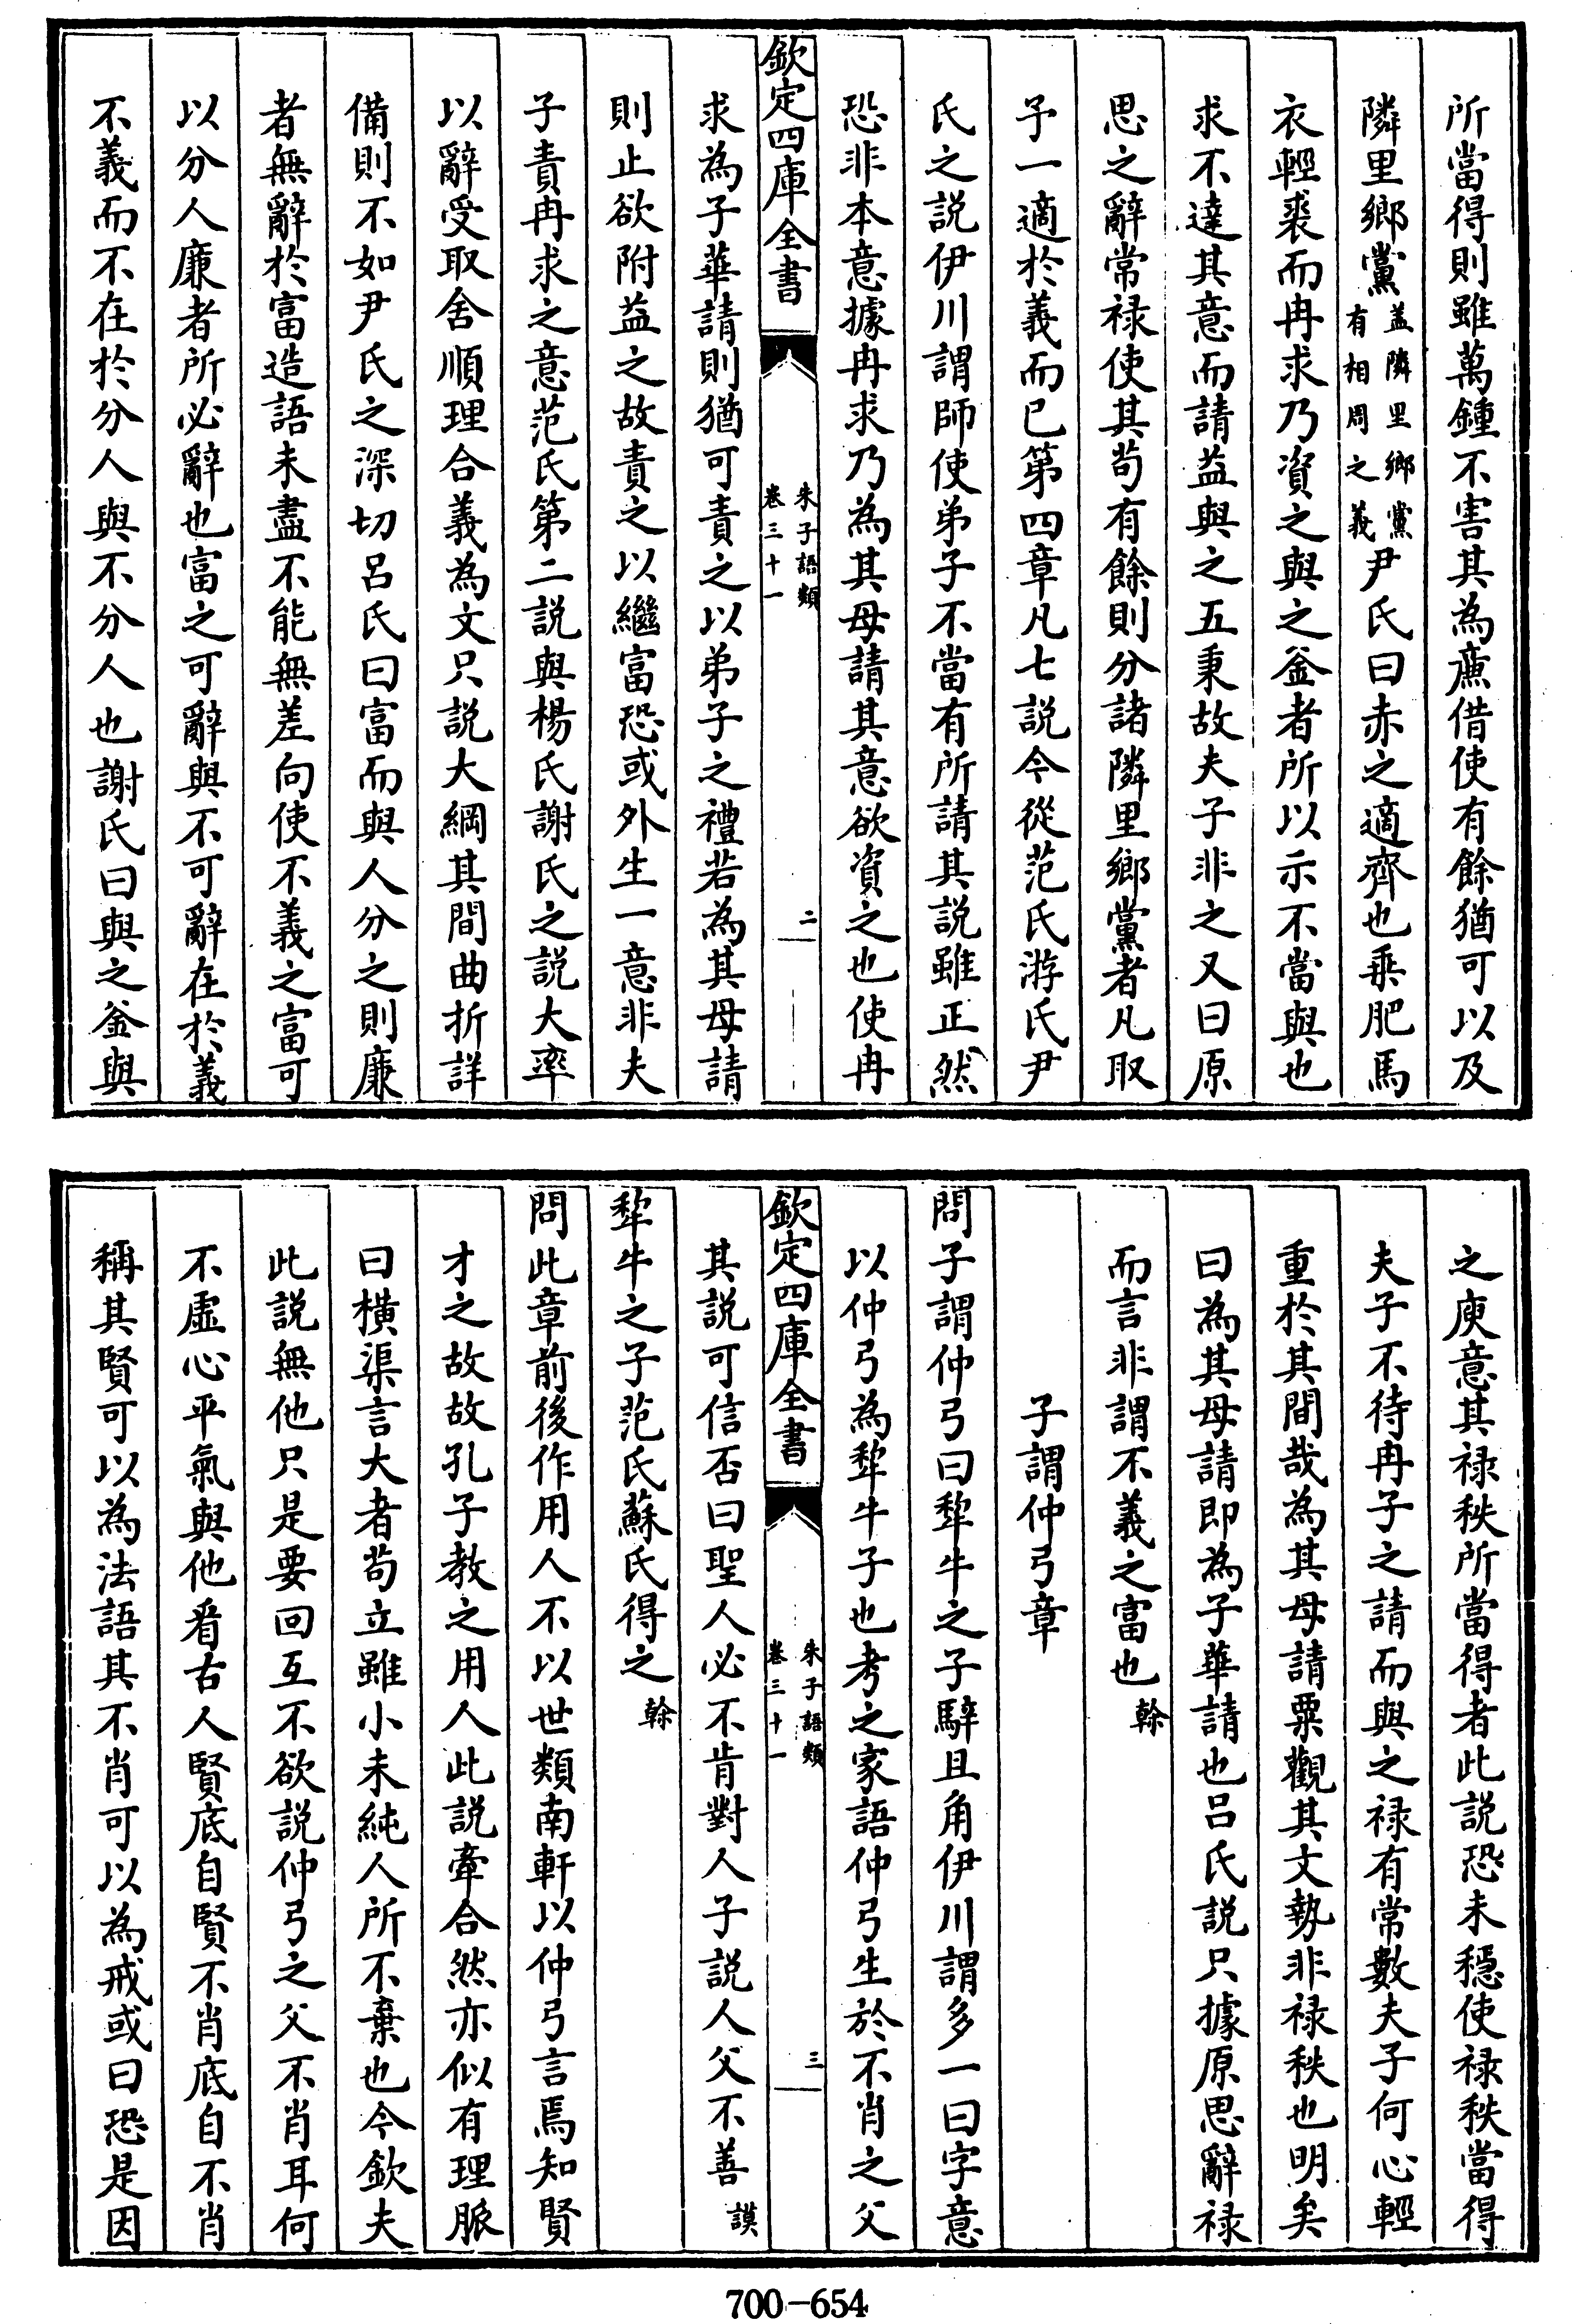 所當得則雖萬鍾不害其為㢘借使有餘猶可以及
隣里鄉黨蓋隣里鄉黨有相周之義尹氏曰赤之適齊也乘肥馬
衣輕裘而冉求乃資之與之釡者所以示不當與也
求不達其意而請益與之五秉故夫子非之又曰原
思之辭常禄使其苟有餘則分諸隣里鄉黨者凡取
予一適於義而已第四章凡七説今從范氏游氏尹
氏之説伊川謂師使弟子不當有所請其説雖正然
恐非本意據冉求乃為其母請其意欲資之也使冉
欽定四庫全書
朱子語類
卷三十一
二
求為子華請則猶可責之以弟子之禮若為其母請
則止欲附益之故責之以繼富恐或外生一意非夫
子責冉求之意范氏第二説與楊氏謝氏之説大率
以辭受取舍順理合義為文只説大綱其間曲折詳
備則不如尹氏之深切呂氏曰富而與人分之則廉
者無辭於富造語未盡不能無差向使不義之富可
以分人廉者所必辭也富之可辭與不可辭在於義
不義而不在於分人與不分人也謝氏曰與之釡與
之庾意其禄秩所當得者此説恐未穩使禄秩當得
夫子不待冉子之請而與之禄有常數夫子何心輕
重於其間哉為其母請粟觀其文勢非禄秩也明矣
曰為其母請即為子華請也呂氏説只據原思辭禄
而言非謂不義之富也榦
子謂仲弓章
問子謂仲弓曰犂牛之子騂且角伊川謂多一曰字意
以仲弓為犂牛子也考之家語仲弓生於不肖之父
欽定四庫全書
朱子語類
卷三十一
三
其説可信否曰聖人必不肯對人子説人父不善謨
犂牛之子范氏蘇氏得之榦
問此章前後作用人不以世類南軒以仲弓言焉知賢
才之故故孔子教之用人此説牽合然亦似有理脈
曰橫渠言大者苟立雖小未純人所不棄也今欽夫
此説無他只是要回互不欲説仲弓之父不肖耳何
不虛心平氣與他看古人賢底自賢不肖底自不肖
稱其賢可以為法語其不肖可以為戒或曰恐是因
700-654